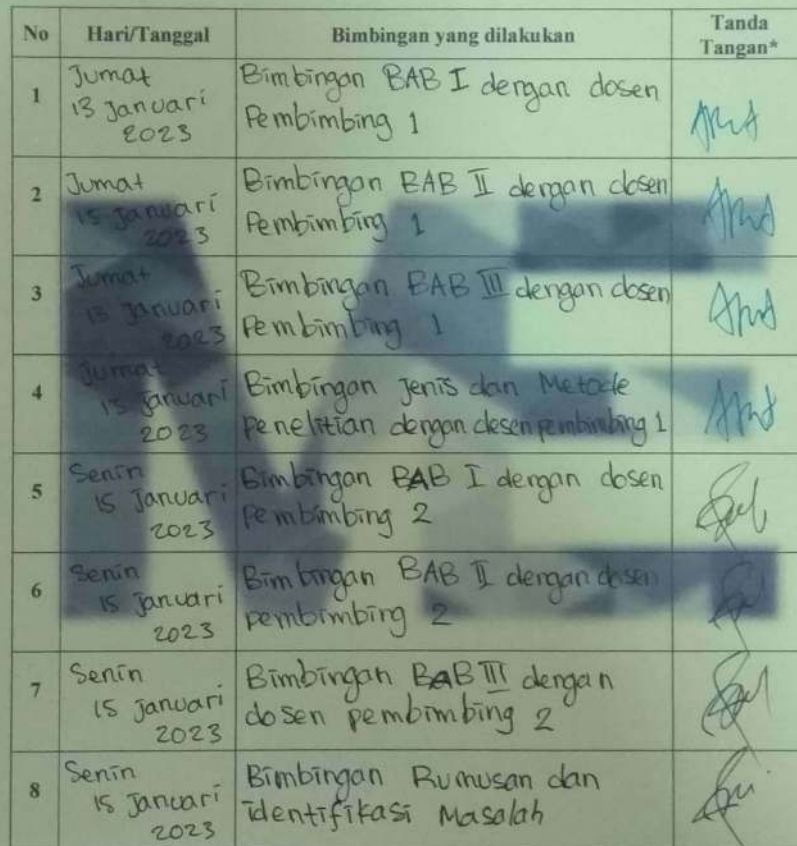 No Hari/Tanggal Bimbingan yang dilakukan Tanda
Tangan*
1 Jumat
13 Januari
2023
Bimbingan BAB I dengan dosen
Pembimbing 1
2 Jumat
13 Januari
2023
Bimbingan BAB II dengan dosen
Pembimbing 1
3 Jumat
13 Januari
2023
Bimbingan BAB III dengan dosen
Pembimbing 1
4 Jumat
13 Januari
2023
Bimbingan Jenis dan Metode
Penelitian dengan desen pembimbing 1
5 Senin
15 Januari
2023
Bimbingan BAB I dengan dosen
Pembimbing 2
6 Senin
15 Januari
2023
Bimbingan BAB II dengan dosen
pembimbing 2
7 Senin
15 Januari
2023
Bimbingan BAB III dengan
dosen pembimbing 2
8 Senin
15 Januari
2023
Bimbingan Rumusan dan
identifikasi Masalah